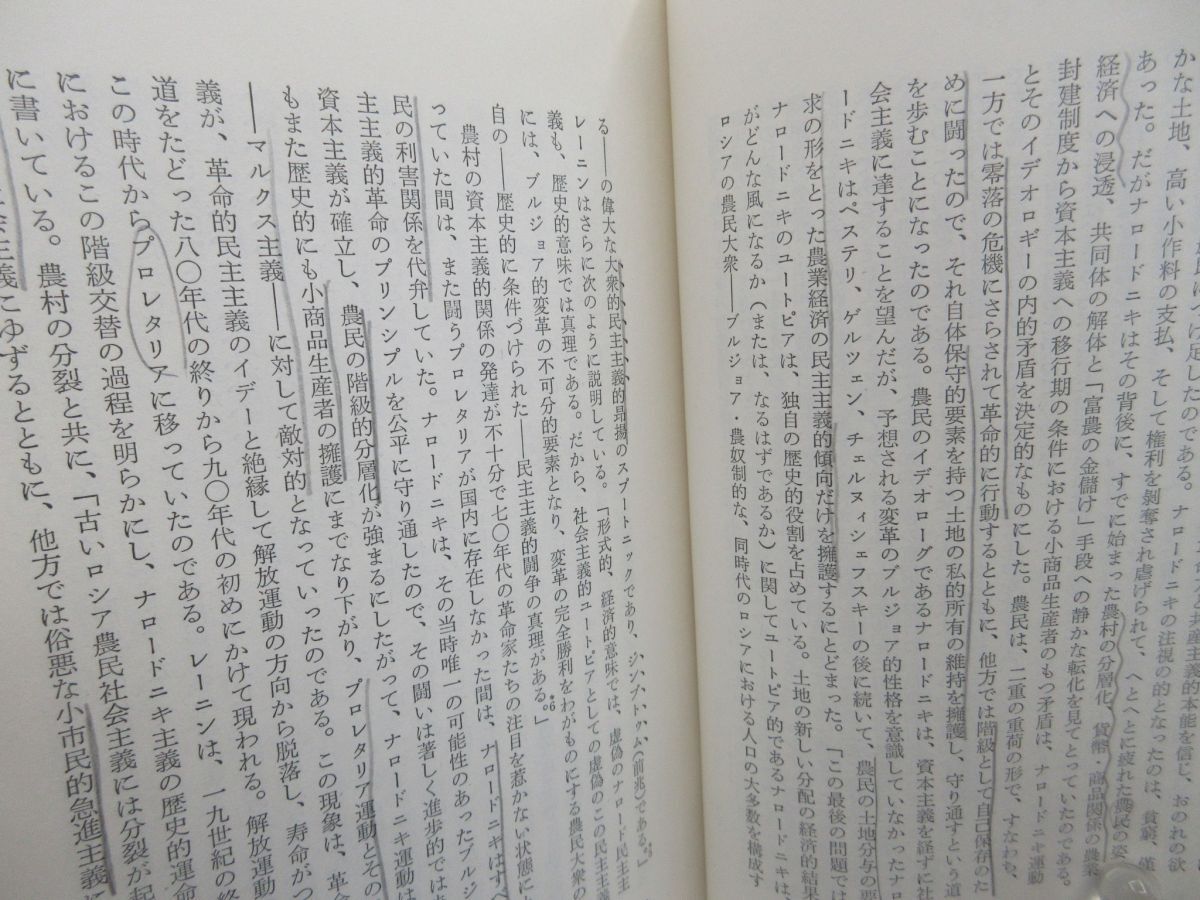 足したのである。ナロードニキの注視の的となったのは、貧窮、僅
かな土地、高い小作料の支払、そして権利を剥奪され虐げられて、へとへとに疲れた農民の姿
あった。だがナロードニキはその背後に、すでに始まった農村の分層化、貨幣・商品関係の農業
経済への浸透、共同体の解体と「富農の金儲け」手段への静かな転化を見てとっていたのである。
封建制度から資本主義への移行期の条件における小商品生産者のもつ矛盾は、ナロードニキ運動
とそのイデオロギーの内的矛盾を決定的なものにした。農民は、二重の重荷の形で、すなわち、
一方では零落の危機にさらされて革命的に行動するとともに、他方では階級として自己保存のた
めに闘ったので、それ自体保守的要素を持つ土地の私的所有の維持を擁護し、守り通すという道
を歩むことになったのである。農民のイデオローグであるナロードニキは、資本主義を経ずに社
会主義に達することを望んだが、予想される変革のブルジョア的性格を意識していなかったナロ
ードニキはペステリ、ゲルツェン、チェルヌィシェフスキーの後に続いて、農民の土地分与の要
求の形をとった農業経済の民主主義的傾向だけを擁護するにとどまった。「この最後の問題では
ナロードニキのユートピアは、独自の歴史的役割を占めている。土地の新しい分配の経済的結果
がどんな風になるか(または、なるはずであるか)に関してユートピア的であるナロードニキは、
ロシアの農民大衆――ブルジョア・農奴制的な、同時代のロシアにおける人口の大多数を構成す
る――の偉大な大衆的民主主義的昂揚のスプートニックであり、シンプトゥム(前兆)である。*5」
レーニンはさらに次のように説明している。「形式的、経済的意味では、虚偽のナロードニキ民主主
義も、歴史的意味では真理である。だから、社会主義的ユートピアとしての虚偽のこの民主主義
には、ブルジョア的変革の不可分的要素となり、変革の完全勝利をわがものにする農民大衆の
自の――歴史的に条件づけられた――民主主義的闘争の真理がある。*6」
農村の資本主義的関係の発達が不十分で七〇年代の革命家たちの注目を惹かない状態に
っていた間は、また闘うプロレタリアが国内に存在しなかった間は、ナロードニキはすべ
民の利害関係を代弁していた。ナロードニキは、その当時唯一の可能性のあったブルジ
主主義的革命のプリンシプルを公平に守り通したので、その闘いは著しく進歩的では
資本主義が確立し、農民の階級的分層化が強まるにしたがって、ナロードニキ運動は
もまた歴史的にも小商品生産者の擁護にまでなり下がり、プロレタリア運動とその
――マルクス主義――に対して敵対的となっていったのである。この現象は、革命
義が、革命的民主主義のイデーと絶縁して解放運動の方向から脱落し、寿命がつ
道をたどった八〇年代の終りから九〇年代の初めにかけて現われる。解放運動
この時代からプロレタリアに移っていたのである。レーニンは、一九世紀の終
におけるこの階級交替の過程を明らかにし、ナロードニキ主義の歴史的運命
に書いている。農村の分裂と共に、「古いロシア農民社会主義には分裂が起
会主義にゆずるとともに、他方では俗悪な小市民的急進主義に